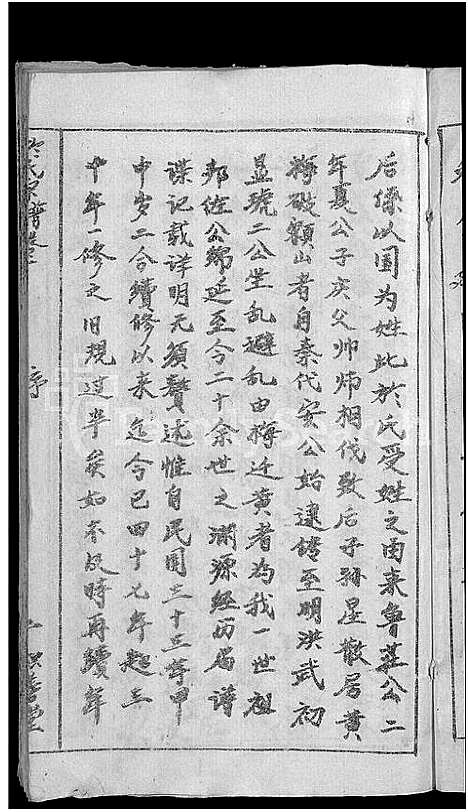 后缘以国为姓此於氏受姓之由来鲁莊公二
年夏公子庆父帅师相伐致后子孙星散居黄
梅破额山者自秦代安公始逮传至明洪武初
显琥二公坐乱避乱由梅迁黄者为我一世祖
邦佐公绵延至今二十余世之渊源经历局谱
谍记载详明无须赘述惟自民国三十三年甲
申岁二合续修以来迄今已四十七年超三
十年一修之旧规过半矣如不及時再续年
於氏宗谱卷
序